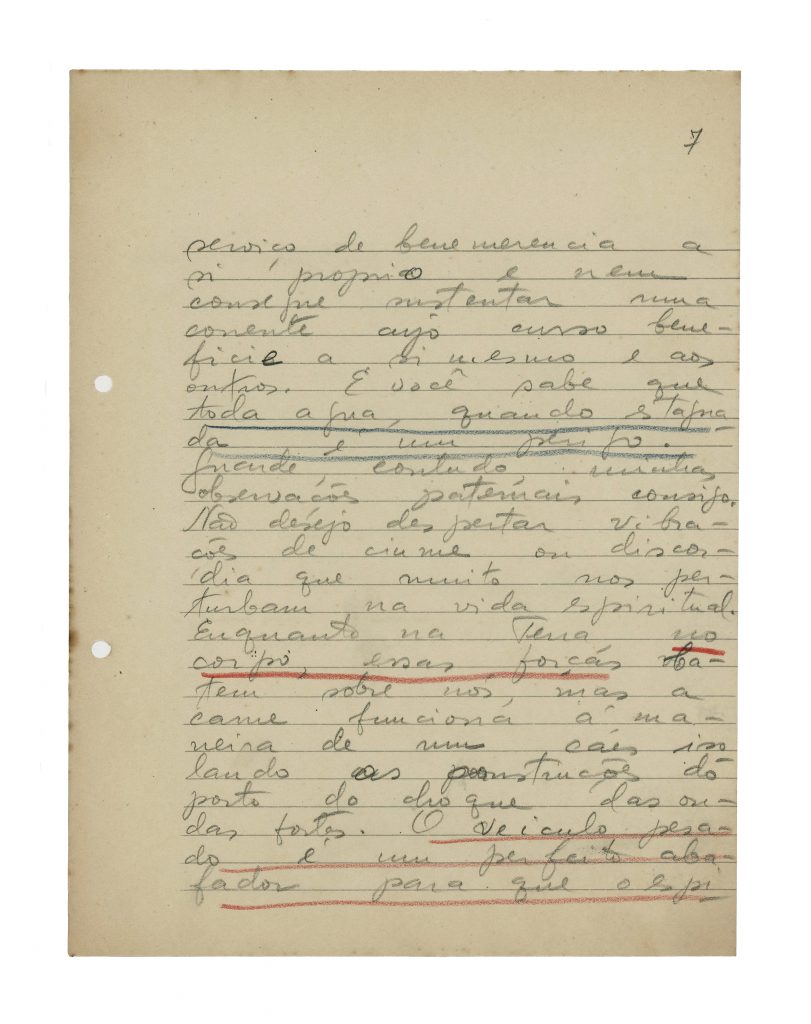 7
serviço de benemerencia a
si proprio e nem
consegue sustentar uma
corrente cujo curso bene-
ficie a si mesmo e aos
outros. E você sabe que
toda agua, quando estagna
da é um perigo. -
Guarde, contudo, minhas
observações paternais consigo.
Não desejo despertar vibra-
ções de ciume ou discor-
dia que muito nos per-
turbam na vida espiritual.
Enquanto na Terra no
corpo, essas forças ba-
tem sobre nós, mas a
carne funciona á ma-
neira de um cáes iso
lando as construcções do
porto do choque das on-
das fortes. O veiculo pesa-
do é um perfeito aba-
fador para que o espi